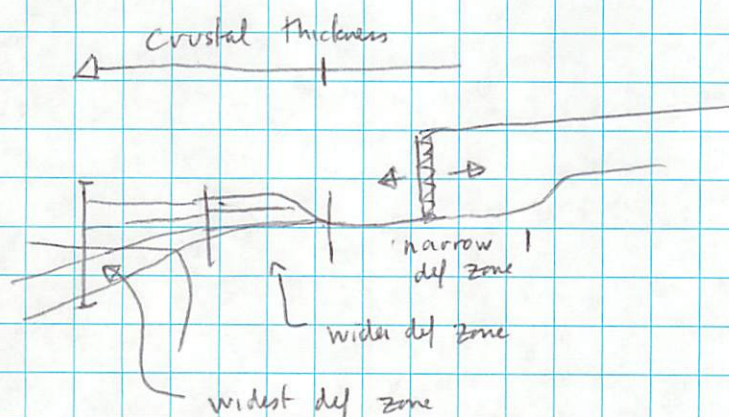 Crustal thickness
narrow
def zone
wider def zone
widest def zone